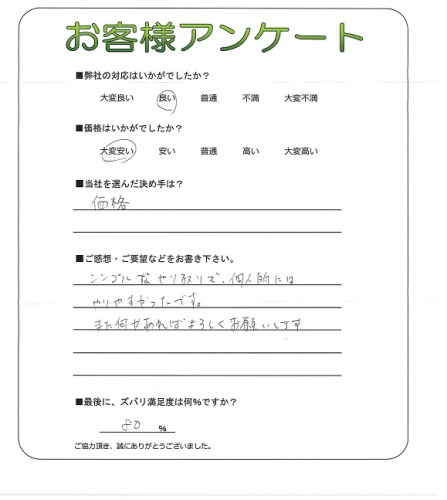 お客様アンケート
■弊社の対応はいかがでしたか？
大変良い 良い 普通 不満 大変不満
■価格はいかがでしたか？
大変安い 安い 普通 高い 大変高い
■当社を選んだ決め手は？
価格
■ご感想・ご要望などをお書き下さい。
シンプルなやり取りで、個人的には
やりやすかったです。
また何かあればよろしくお願いします
■最後に、ズバリ満足度は何%ですか？
80 %
ご協力頂き、誠にありがとうございました。